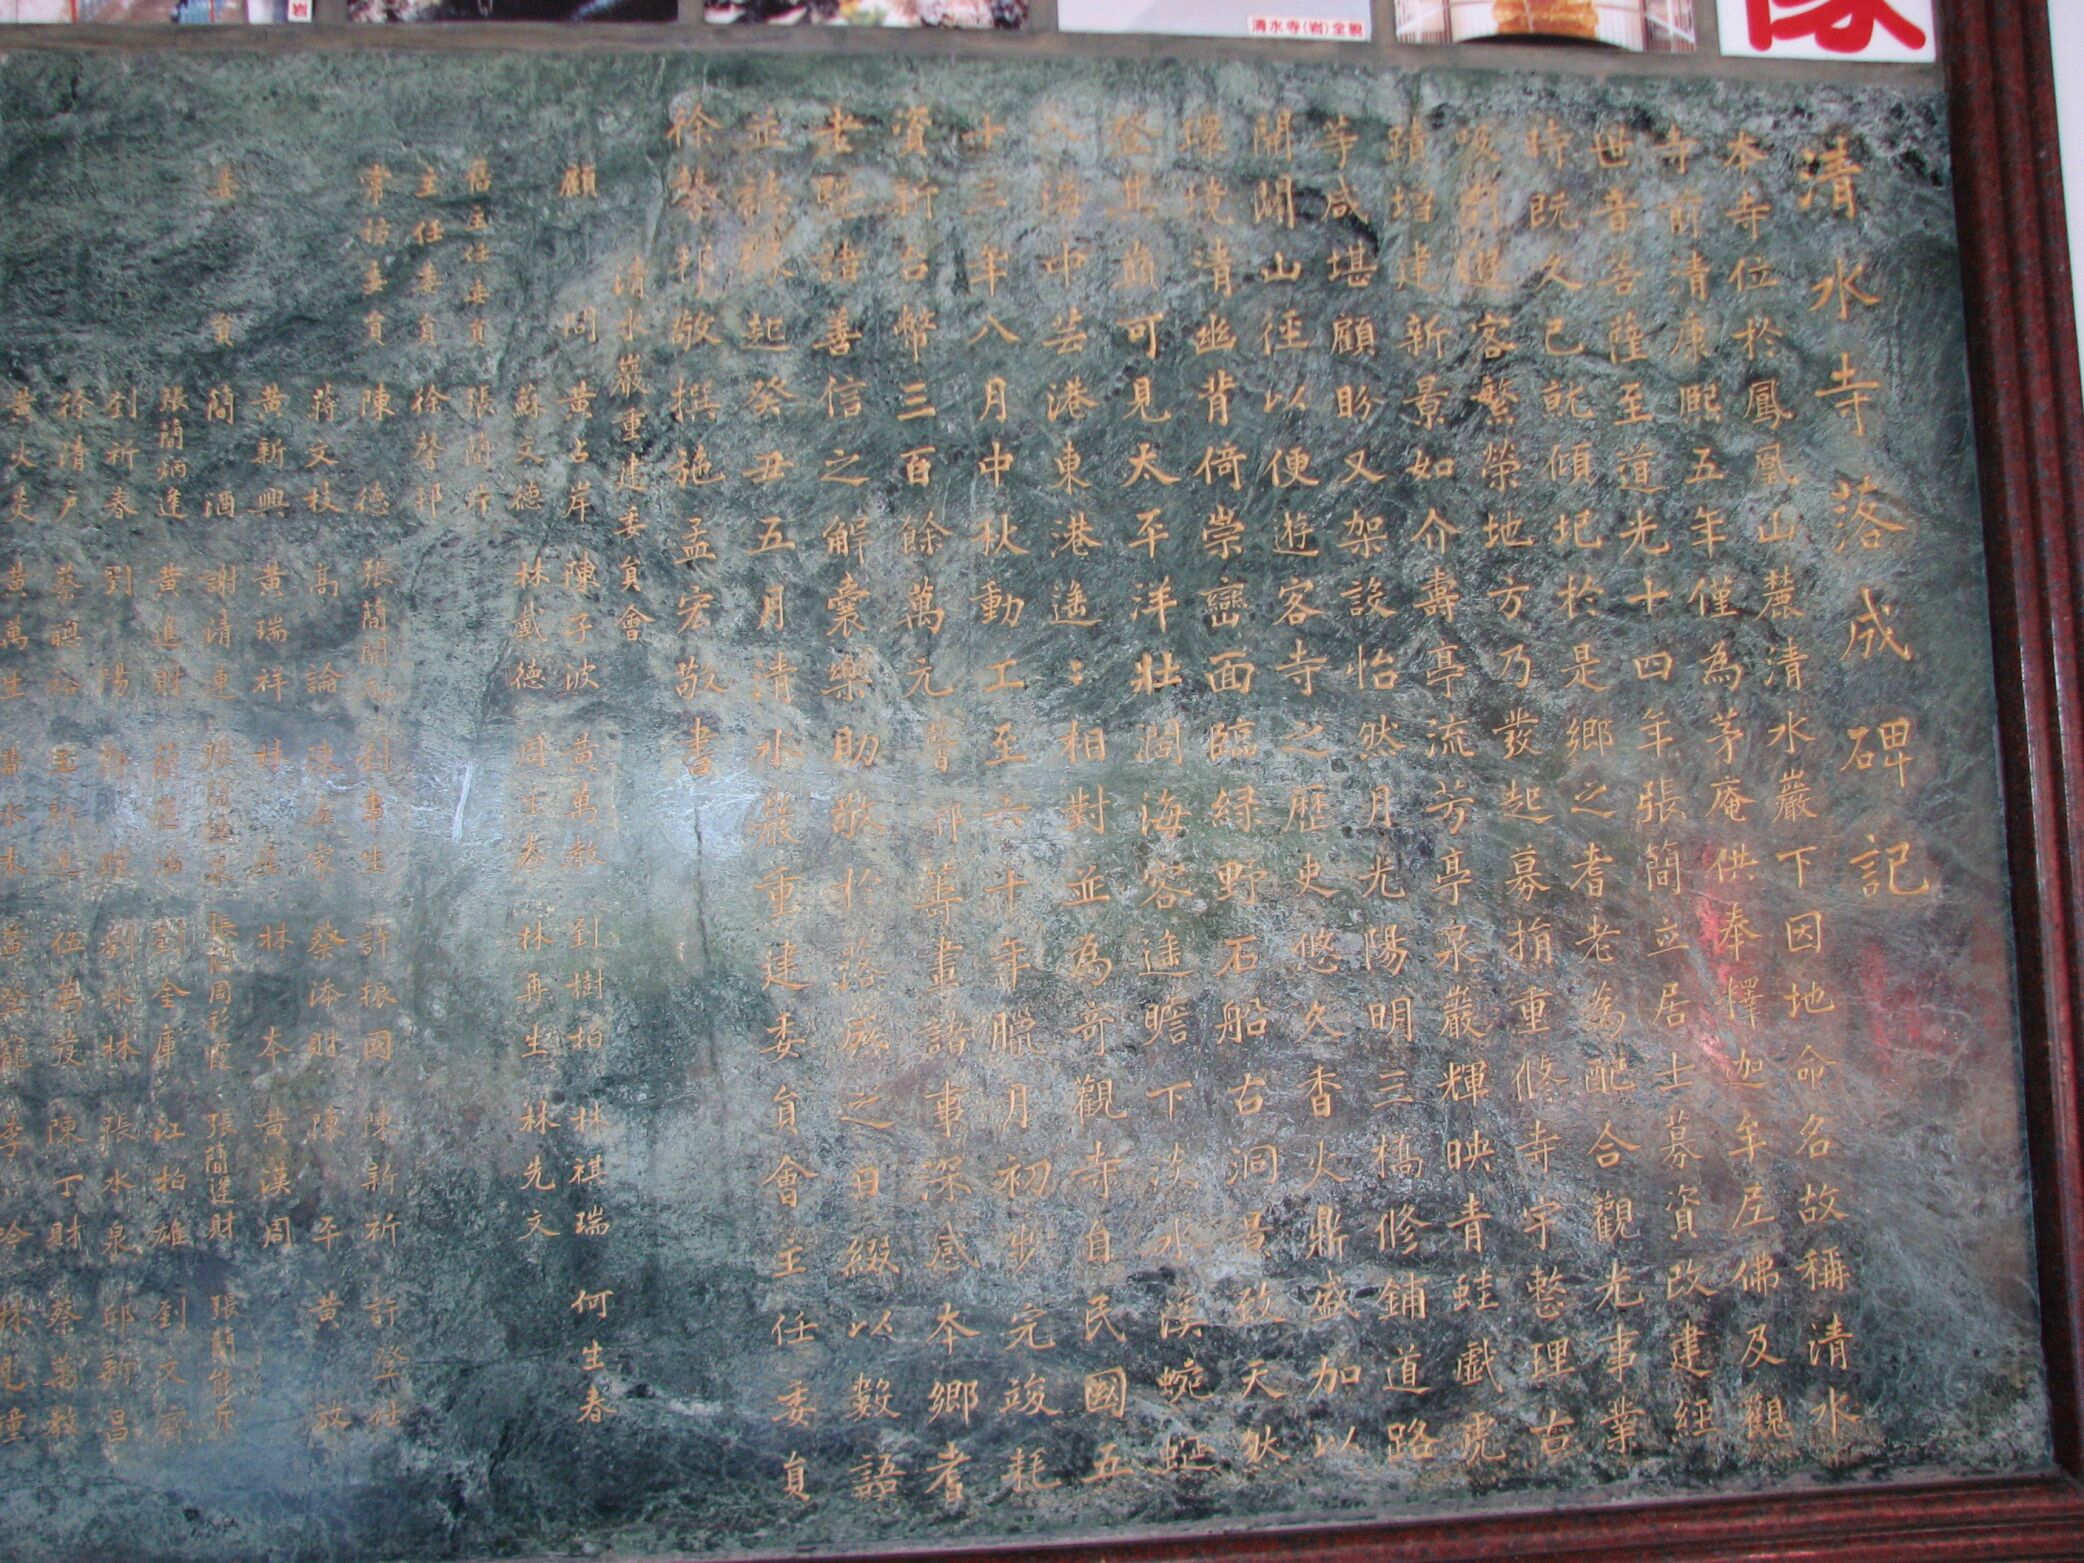 清水寺(岩)全貌
岩
清水寺落成碑記
本寺位於鳳凰山麓清水巖下因地命名故稱清水
寺前清康熙五年僅為茅庵供奉釋迦牟尼佛及觀
世音菩薩至道光十四年張簡立居士募資改建經
時既久已就傾圮於是鄉之耆老為配合觀光事業
客繁榮地方乃發起募捐重修寺宇整理古
蹟增建新景如介壽亭流芳亭泉巖輝映青蛙戲虎
等咸堪顧盼又架設怡然月光陽明三橋修鋪道路
開闢山徑以便遊客寺之歷史悠久香火鼎盛加以
環境清幽背倚崇巒面臨綠野石船古洞景致天然
登其巔可見太平洋壯濶海容遙瞻下淡水溪蜿蜒
中芸港東港遙;相對並為奇觀寺自民國五
十三年八月中秋動工至六十年臘月初步完竣耗
資新台幣三百餘萬元馨邦籌畫諸事深感本鄉耆
老暨諸善信之解囊樂助敬於落成之日綴以數語
並誌緣起癸丑五月清水巖重建委員會主任委員
徐馨邦敬撰施孟宏敬書
清水巖重建委員會
顧問 黃占岸 陳子波 黃萬教 劉樹柏 林祺瑞 何生春
蘇文德 林戴德 周士泰 林再生 林先文
舊主任委員 張簡片
主任委員 徐馨邦
常務委員 陳德 張簡開元 劉事生 許振國 陳新祈 許登仕
蔣文枝 高論 陳家 蔡添財 陳平 黃敬
黃新興 黃瑞祥 林 林本 黃漢周
委員 簡酒 謝清連 張簡 張簡周彩霞 張簡逢財 張簡能斤
張簡炳逢 黃進財 劉金庫 江柏雄 劉文齋
劉祈春 劉陽 劉水林 張水泉 邱新昌
徐清戶 蔡聰裕 伍萬發 陳丁財 蔡萬教
黃火炎 黃萬生